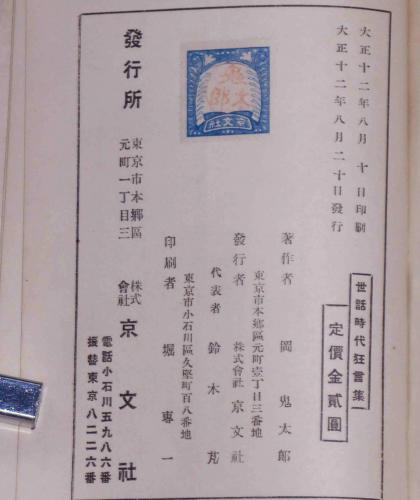 大正十二年八月十日印刷
大正十二年八月二十日發行
世話時代狂言集
定價金貳圓
著作者 岡鬼太郎
東京市本鄕區元町壹丁目三番地
發行者 株式會社京文社
代表者 鈴木芹
東京市小石川區久堅町百八番地
印刷者 堀専一
鬼太郎
京文社
發行所
東京市本鄕區
元町一丁目三
株式會社 京文社
電話小石川五九八六番
振替東京八二二六番